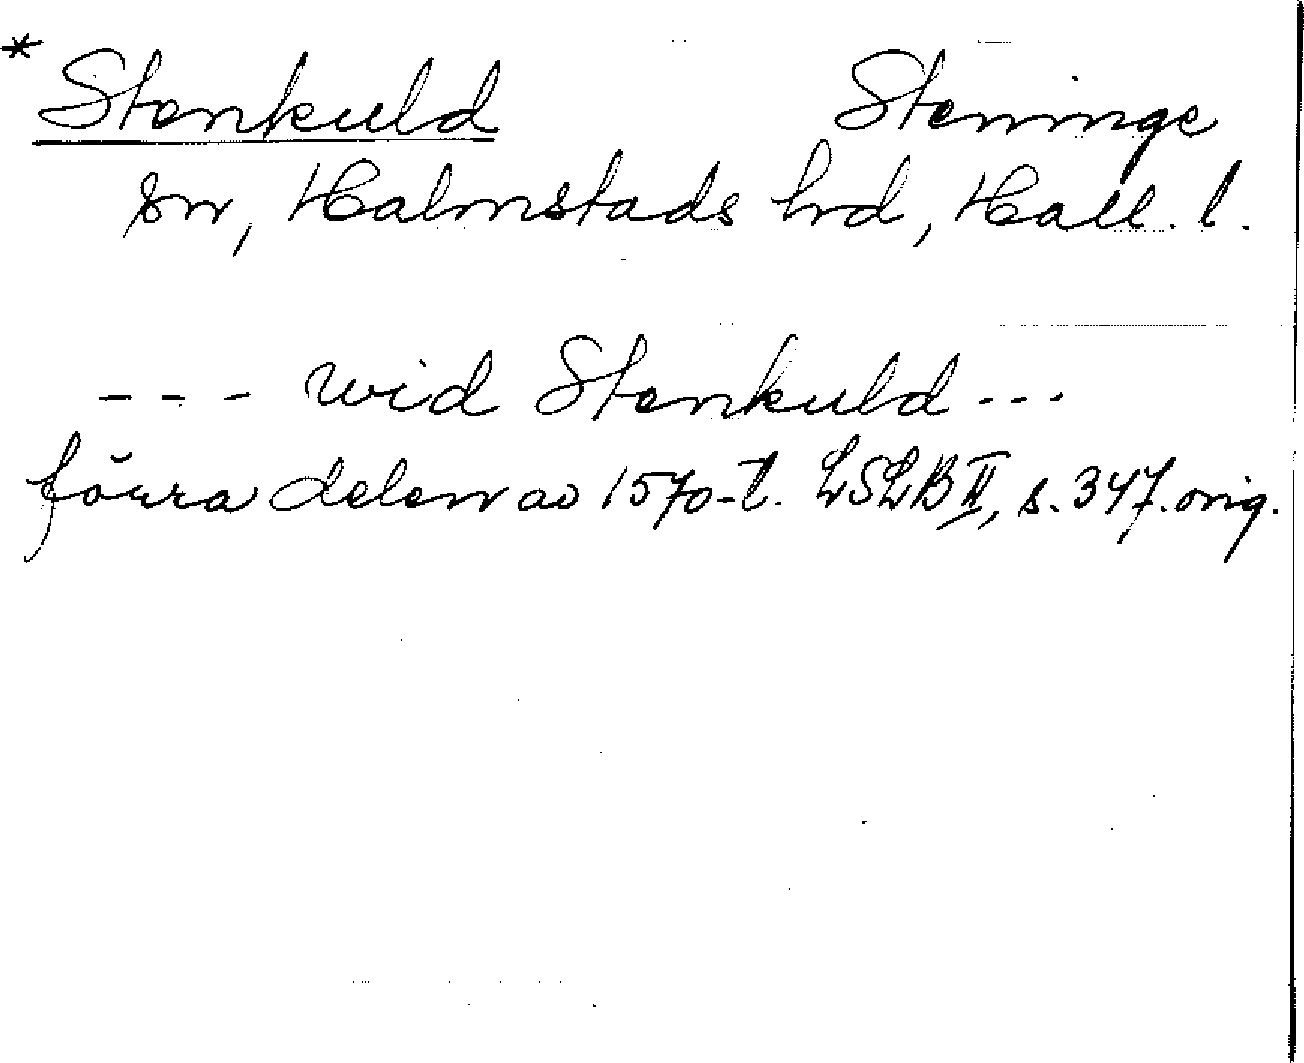 * Stenkuld Steninge
sn, Halmstads hrd, Hall. l.
- - - wid Stenkuld - - -
förra delen av 1570-t. LSLB II, s. 347. orig.